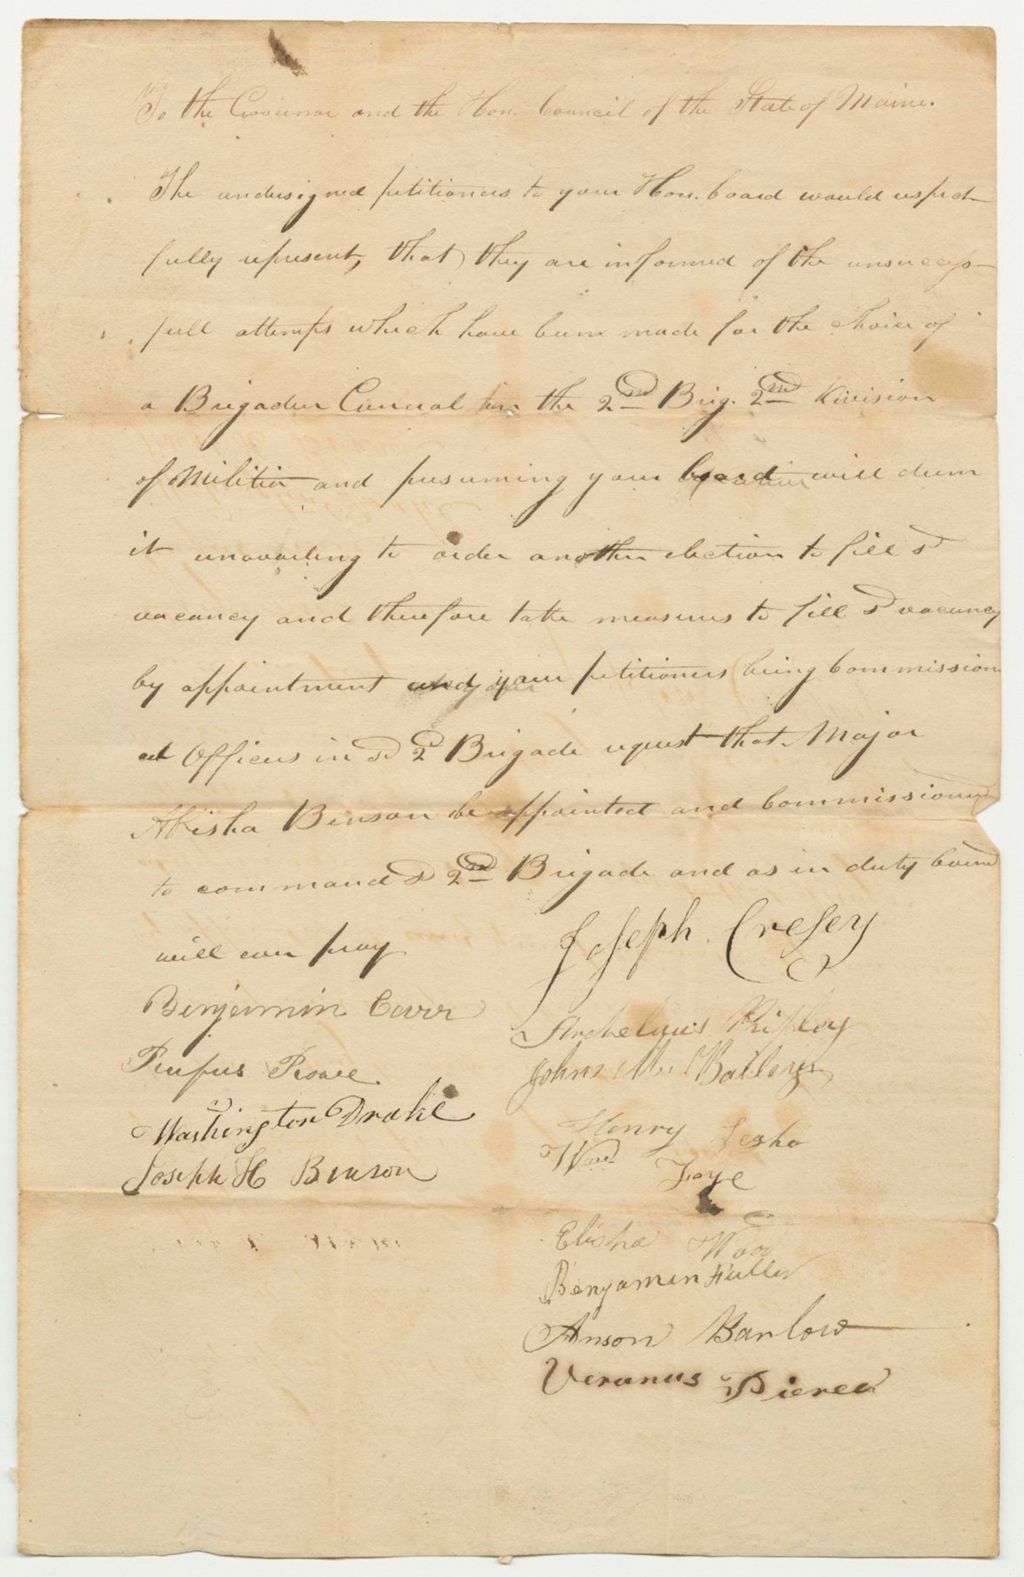 To the Governor and the Hon. Council of the State of Maine.
The undersigned petitioners to your Hon. board would respect-
fully represent, that they are informed of the unsuccess-
full attemps which have been made for the choice of
a Brigadier General for the 2nd Brig. 2nd Division
of Militia and presuming your board will deem
it unavailing to order another election to fill sd
vacancy and therefore take measures to fill sd vacancy
by appointment your petitioners being Commission
ed Officers in sd 2d Brigade request that Major
Abisha Benson be appointed and Commissioned
to command sd 2nd Brigade and as in duty bound
will ever pray
Joseph Cresey
Benjamin Carr
Archelaus Ripley
Rufus Rowe
Johns M. Bailey
Washington Drake
Henry
Joseph H Benson
Ward Foye
Elisha Wood
Benjamin Fuller
Anson Barlow
Veranus Pierce